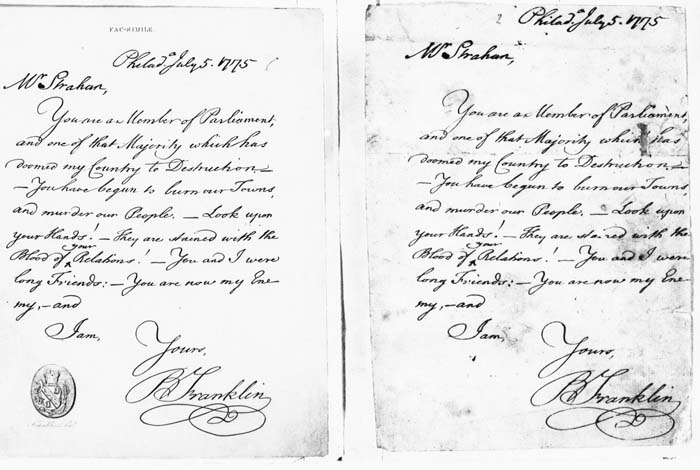 FAC-SIMILE.
Philad.ᵃ July 5. 1775
Mʳ Strahan,
You are a Member of Parliament,
and one of that Majority which has
doomed my Country to Destruction.—
— You have begun to burn our Towns,
and murder our People. — Look upon
your Hands! — They are stained with the
Blood of your Relations! — You and I were
long Friends: — You are now my Ene
my, — and
I am,
Yours,
B Franklin
Philad.ᵃ July 5. 1775
Mʳ Strahan,
You are a Member of Parliament,
and one of that Majority which has
doomed my Country to Destruction.—
— You have begun to burn our Towns,
and murder our People. — Look upon
your Hands! — They are stained with the
Blood of your Relations! — You and I were
long Friends: — You are now my Ene
my, — and
I am,
Yours,
B Franklin